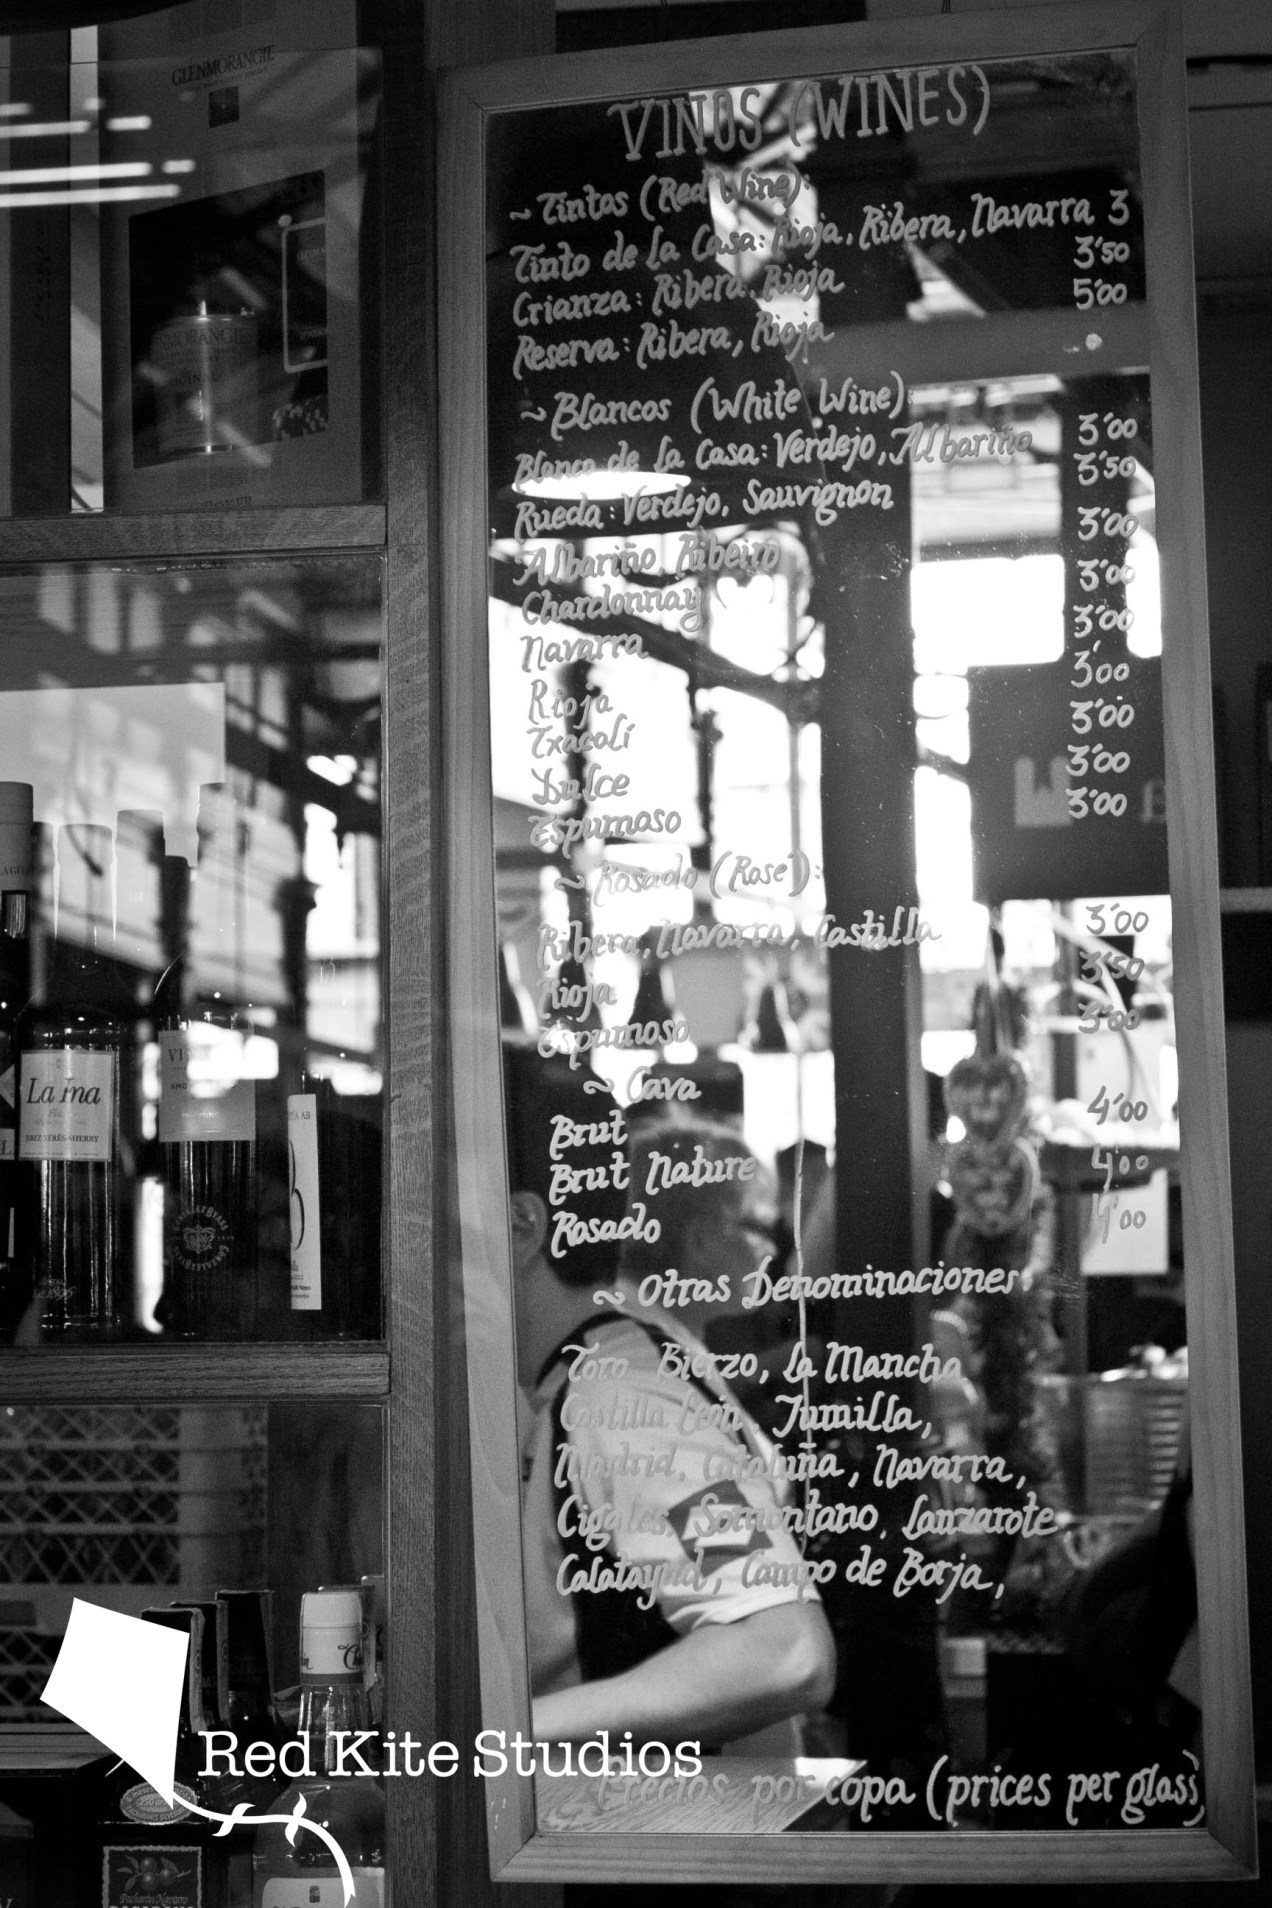 GLENMORANGIE
VINOS (WINES)
~ Tintos (Red Wine):
Tinto de la Casa: Rioja, Ribera, Navarra 3
Crianza: Ribera, Rioja 3'50
Reserva: Ribera, Rioja 5'00
~ Blancos (White Wine):
Blanco de la Casa: Verdejo, Albariño 3'00
Rueda: Verdejo, Sauvignon 3'50
Albariño, Ribeiro 3'00
Chardonnay 3'00
Navarra 3'00
Rioja 3'00
Txacolí 3'00
Dulce 3'00
Espumoso 3'00
~ Rosado (Rose):
Ribera, Navarra, Castilla 3'00
Rioja 3'50
Espumoso 3'00
~ Cava
Brut 4'00
Brut Nature 4'00
Rosado 4'00
~ Otras Denominaciones:
Toro, Bierzo, La Mancha
Castilla León, Jumilla,
Madrid, Cataluña, Navarra,
Cigales, Somontano, Lanzarote,
Calatayud, Campo de Borja,
Precios por copa (prices per glass)
La Ina
JEREZ-XÉRÈS-SHERRY
Red Kite Studios
Pacharán Navarro